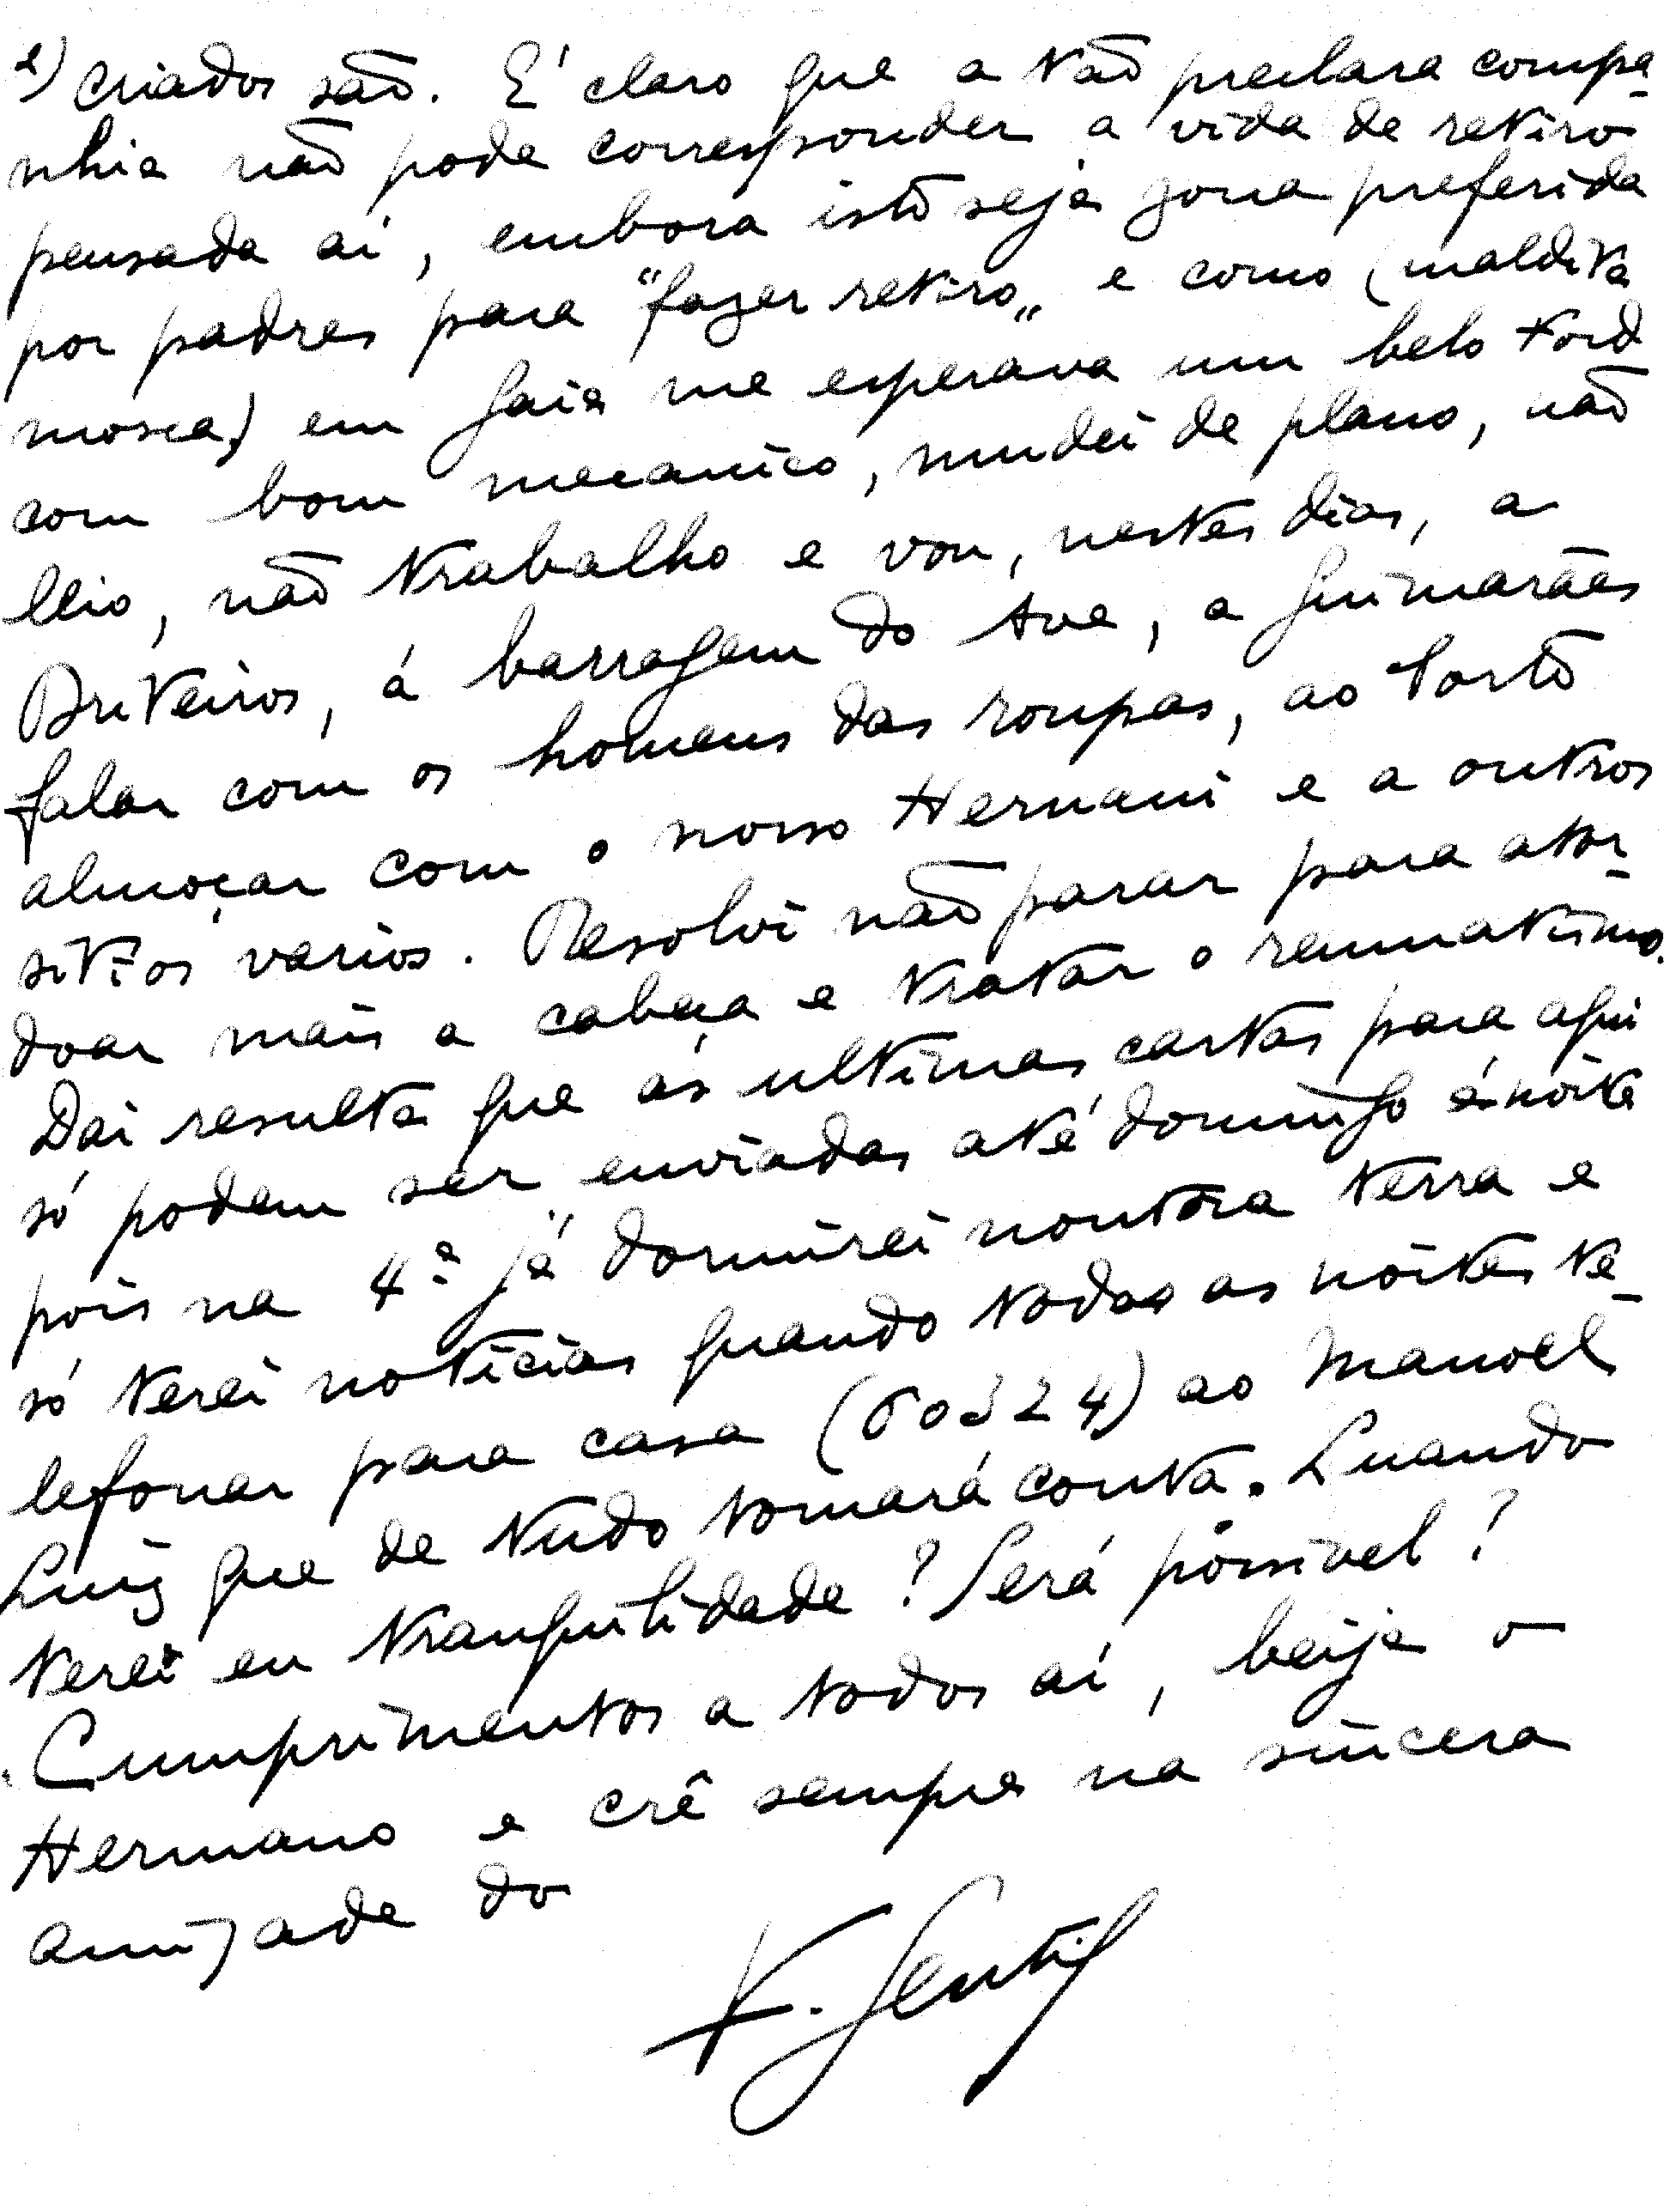 2) criados são. É claro que a tão preclara compa-
nhia não pode corresponder a vida de retiro
pensada aí, embora isto seja zona preferida
por padres para "fazer retiro" e como (maldita
mosca) em Gaia me esperava um belo Ford
com bom mecanico, mudei de plano, não
leio, não trabalho e vou, nestes dias, a
Briteiros, á barragem do Ave, a Guimarães
falar com os homens das roupas, ao Porto
almoçar com o nosso Hernani e a outros
sitios varios. Resolvi não parar para ator-
doar mais a cabeça e tratar o reumatismo.
Daí resulta que as ultimas cartas para aqui
só podem ser enviadas até domingo á noite
pois na 4ª já dormirei noutra terra e
só terei noticias quando todas as noites te-
lefonar para casa (60324) ao Manoel
Luiz que de tudo tomará conta. Quando
terei eu tranquilidade? Será possivel?
Cumprimentos a todos aí, beija o
Hermano e crê sempre na sincera
amizade do
F. Gentil